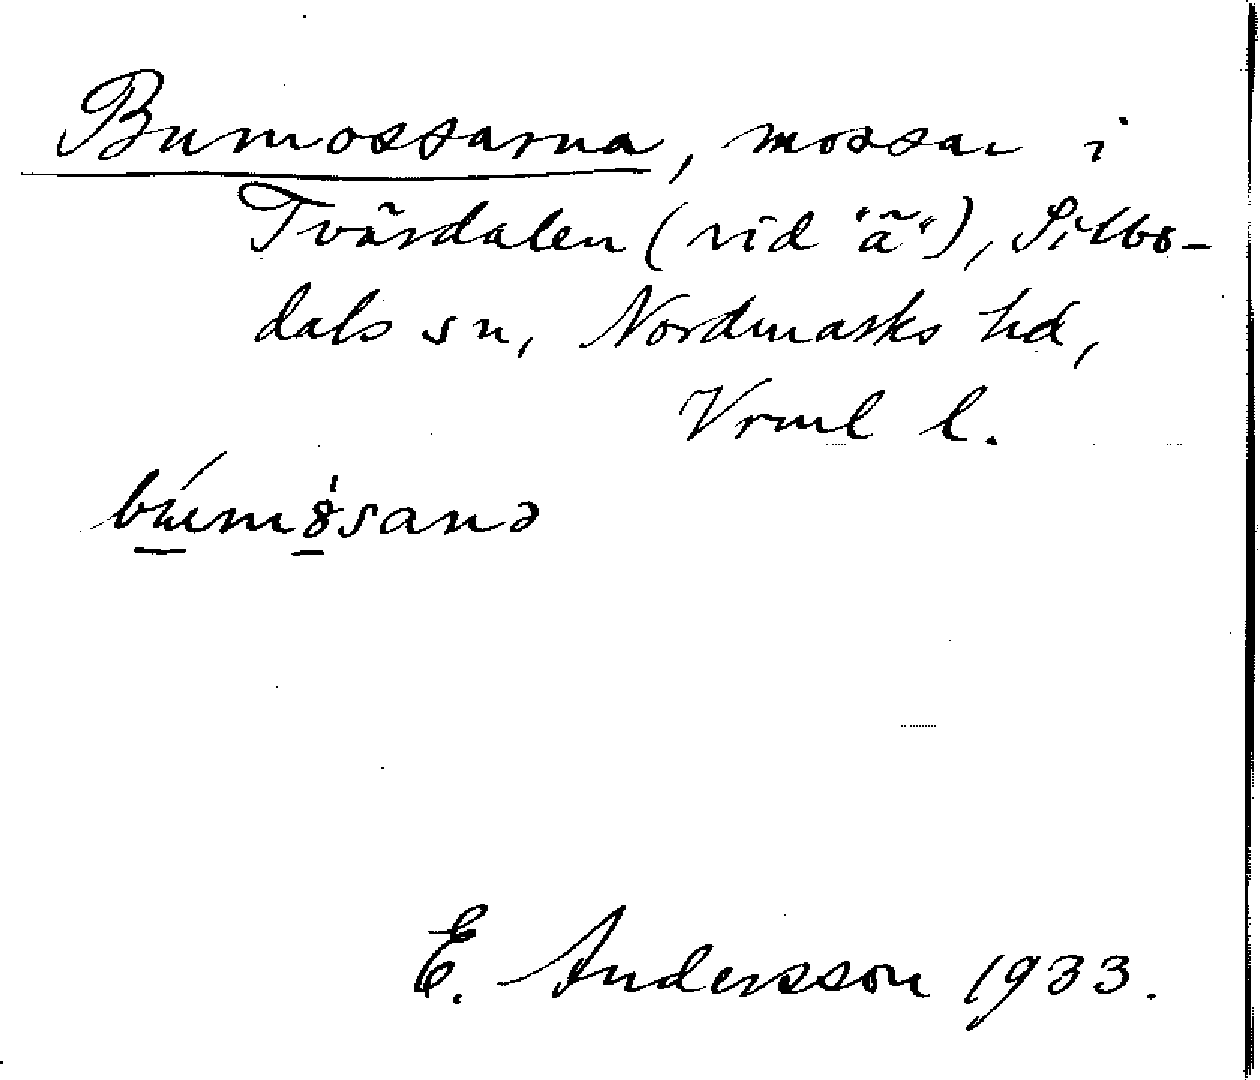 Bumossarna, mossar i
Tvärdalen (vid "ä"), Silbo-
dals sn, Nordmarks hd,
Vrml l.
E. Andersson 1933.